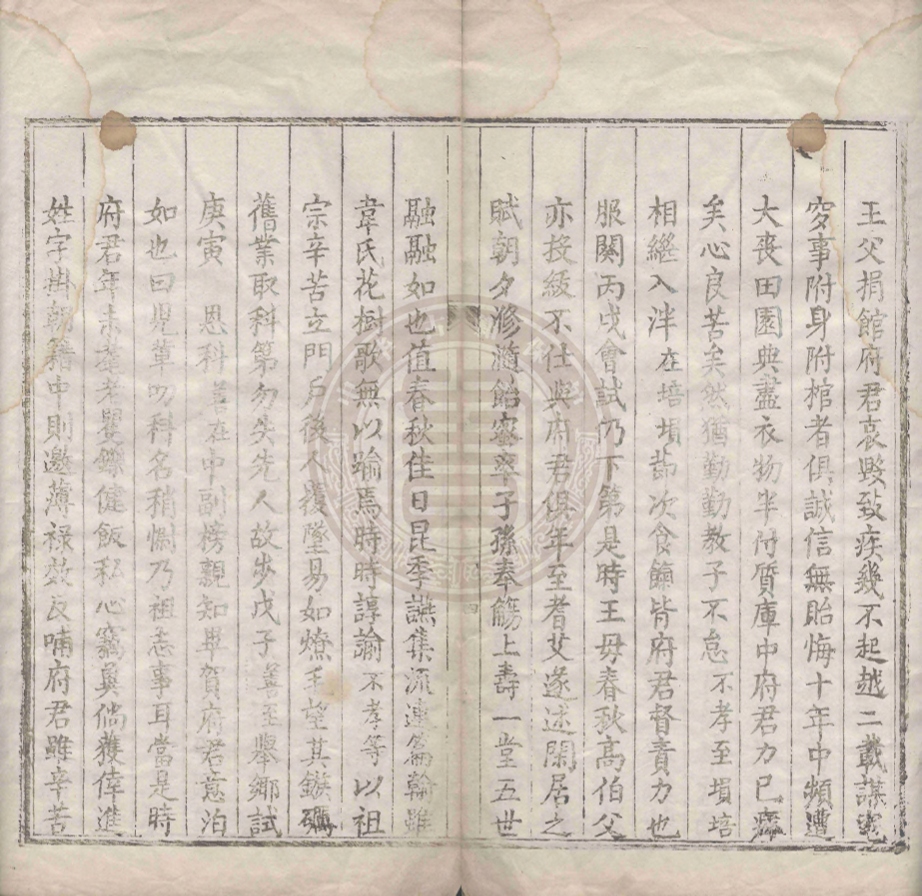 王父捐館府君哀毀致疾幾不起越二載謀窀
穸事附身附棺者俱誠信無貽悔十年中頻遭
大喪田園典盡衣物半付質庫中府君力已瘁
矣心良苦矣然猶勤勤教子不怠不孝至塤培
相繼入泮在培塤節次食餼皆府君督責力也
服闋丙戌會試乃下第是時王母春秋高伯父
亦投級不仕與府君俱年至耆艾遂述閑居之
賦朝夕滫瀡飴蜜率子孫奉觴上壽一堂五世
融融如也值春秋佳日昆季讌集流連篇翰雖
韋氏花樹歌無以踰焉時時諄諭不孝等以祖
宗辛苦立門戶後人覆墜易如燎毛望其鏃礪
舊業取科第勿失先人故步戊子善至舉鄉試
庚寅恩科善在中副榜親知畢賀府君意泊
如也曰兒輩叨科名稍慰乃祖志事耳當是時
府君年未耄老矍鑠健飯私心竊冀倘獲倖進
姓字掛朝籍中則邀薄祿效反哺府君雖辛苦